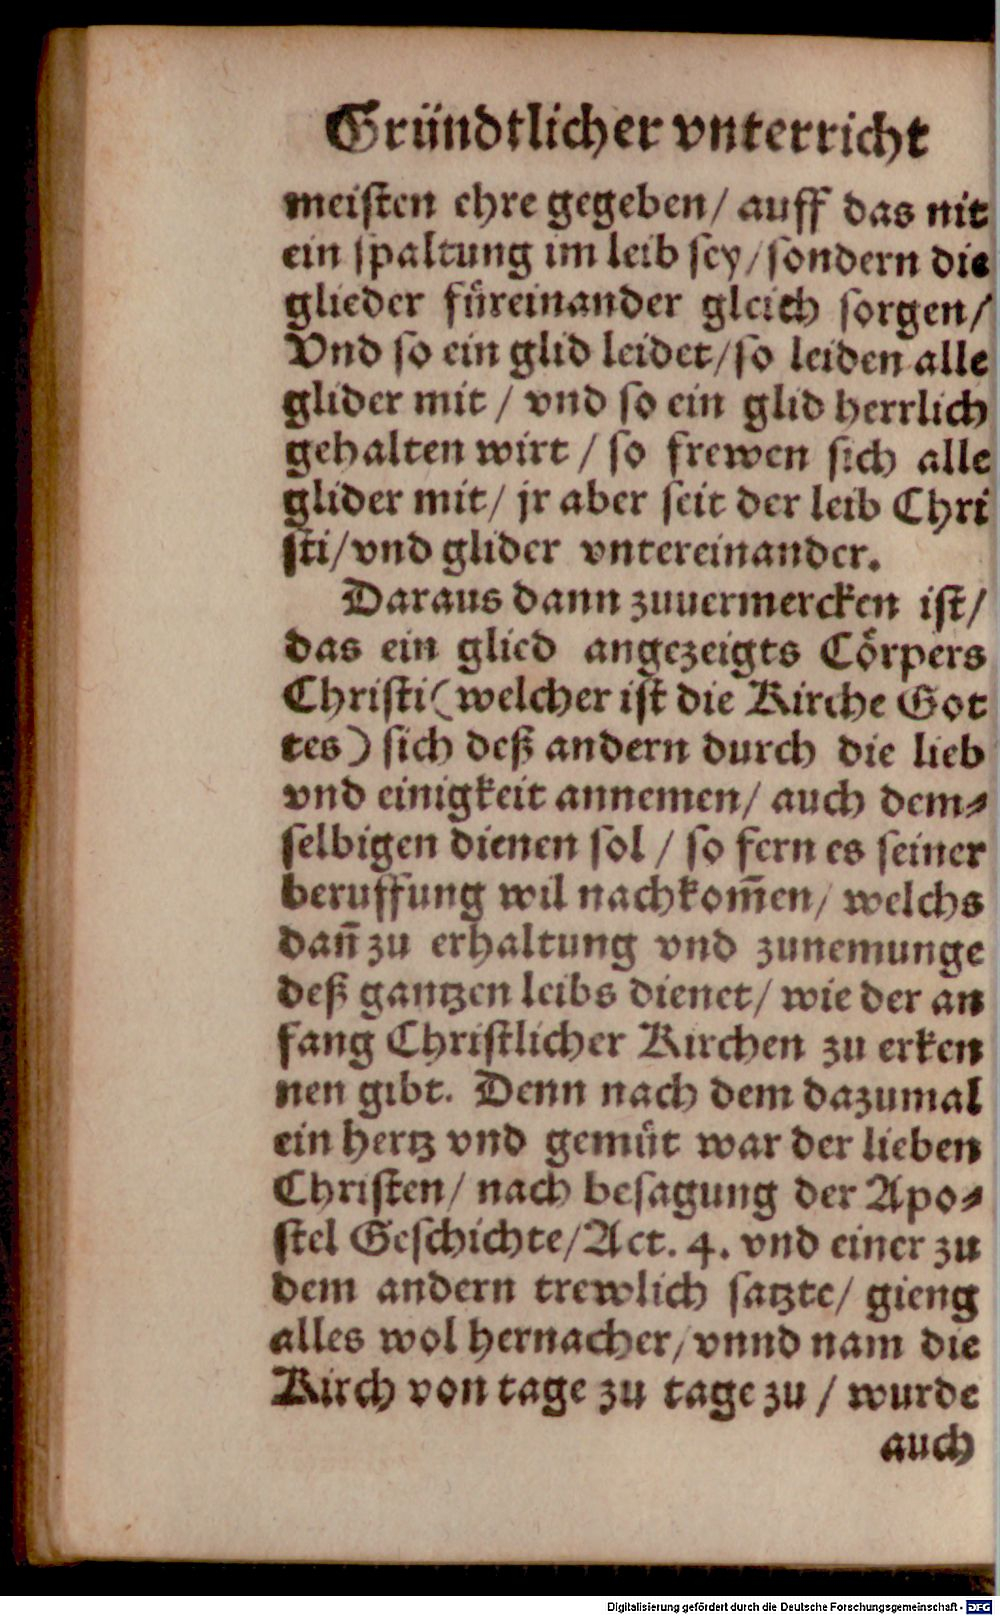 Gründtlicher vnterricht
meisten ehre gegeben/ auff das nit
ein spaltung im leib sey/sondern die
glieder fůreinander gleich sorgen/
Vnd so ein glid leidet/so leiden alle
glider mit / vnd so ein glid herrlich
gehalten wirt / so frewen sich alle
glider mit/ jr aber seit der leib Chri
sti/vnd glider vntereinander.
Daraus dann zuuermercken ist/
das ein glied angezeigts Cörpers
Christi(welcher ist die Kirche Got
tes) sich deß andern durch die lieb
vnd einigkeit annemen/ auch dem⸗
selbigen dienen sol / so fern es seiner
beruffung wil nachkom̃en/ welchs
dañ zu erhaltung vnd zunemunge
deß gantzen leibs dienet/ wie der an
fang Christlicher Kirchen zu erken
nen gibt. Denn nach dem dazumal
ein hertz vnd gemůt war der lieben
Christen/ nach besagung der Apo⸗
stel Geschichte/Act. 4. vnd einer zu
dem andern trewlich satzte/ gieng
alles wol hernacher/vnnd nam die
Kirch von tage zu tage zu / wurde
auch
Digitalisierung gefördert durch die Deutsche Forschungsgemeinschaft - DFG